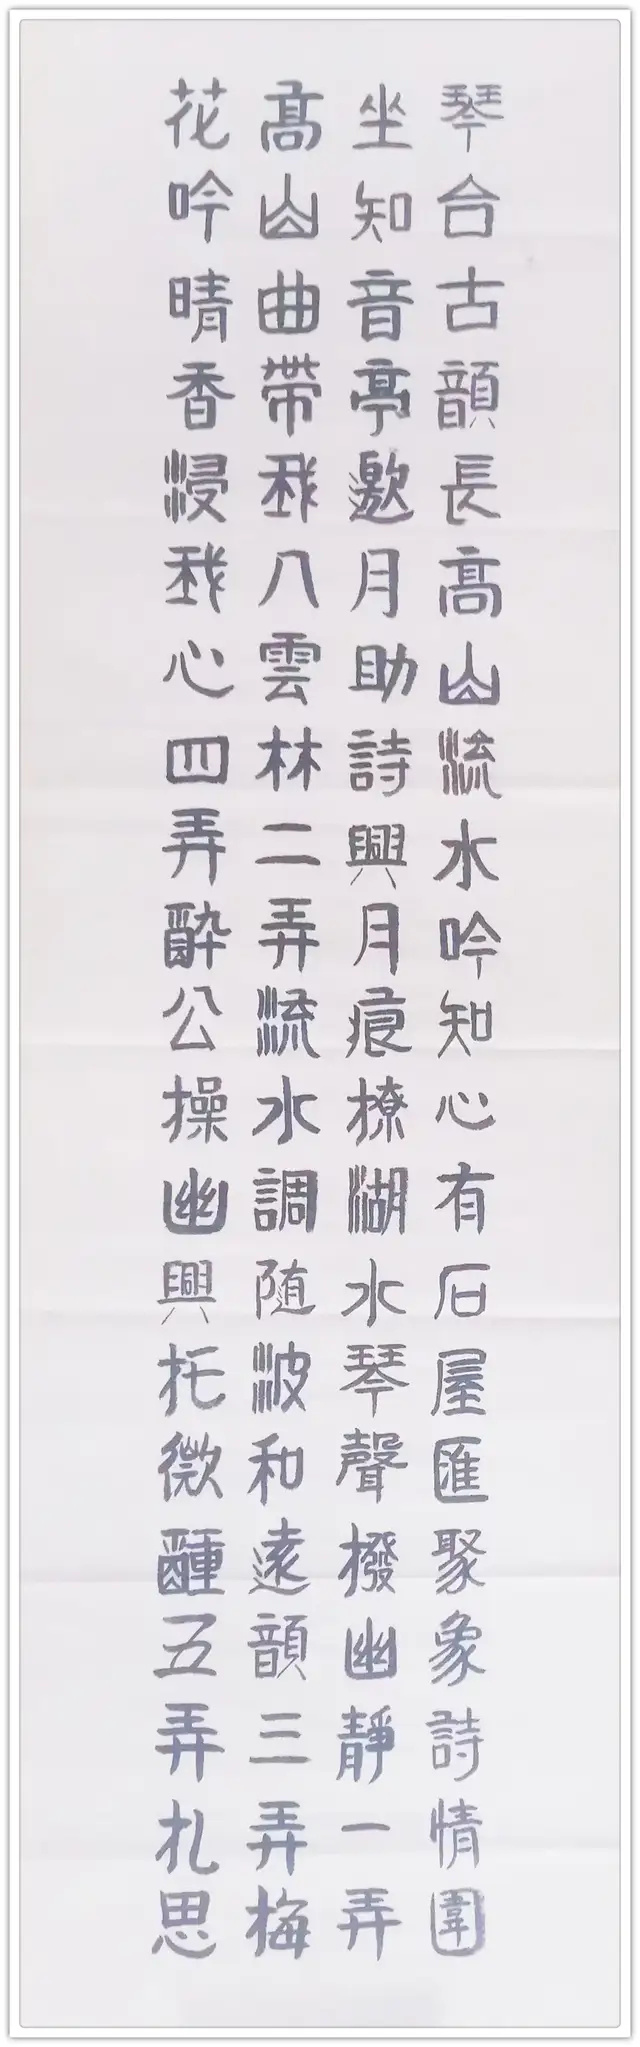 琴台古韻長高山流水吟知心有石屋匯聚象詩情圍
坐知音亭邀月助詩興月痕撩湖水琴聲撥幽靜一弄
高山曲帶我八雲林二弄流水調随波和遠韻三弄梅
花吟晴香浸我心四弄醉公操幽興托微醺五弄扎思